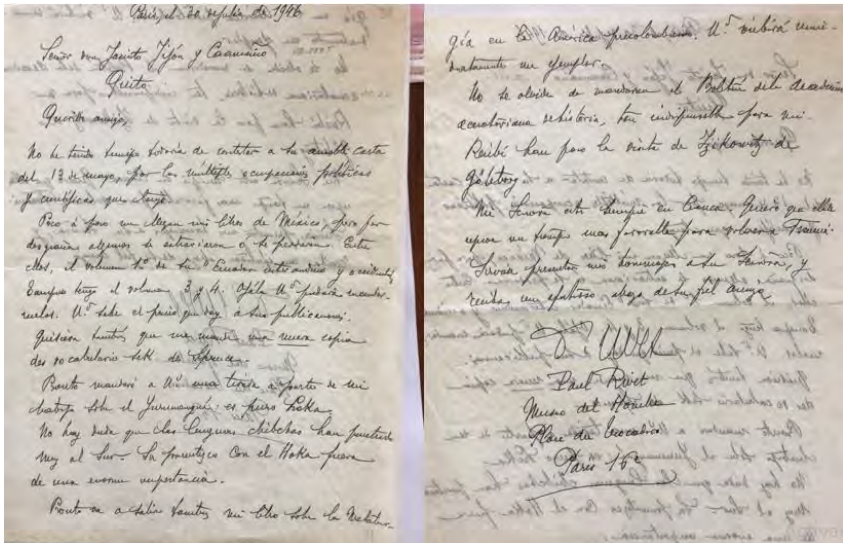 Paris, el 30 de julio de 1946
Señor don Jacinto Jijón y Caamaño
Quito
Querido amigo,
No he tenido tiempo todavía de contestar a su amable carta
del 13 de mayo, por las múltiples ocupaciones políticas
y científicas que tengo.
Poco á poco me llegan mis libros de México, pero por
desgracia algunos se extraviaron o se perdieron. Entre
ellos, el volumen 1º de su "Ecuador interandino y occidental
Tampoco tengo el volumen 3 y 4. Ojalá Ud pudiera mandar-
melos. Ud sabe el precio que doy á sus publicaciones.
Quisiera también que me mande una nueva copia
del vocabulario de Spruce.
Pronto mandaré a Ud una tirada a parte de mi
trabajo sobre el Yurumangui: es puro Hoka
No hay duda que las lenguas chibchas han penetrado
muy al Sur. Su parentesco con el Hoka
de una enorme importancia.
Pronto va a salir también mi libro sobre la Metalur-
gía en la América precolombina. Ud recibirá
un ejemplar.
No se olvide de mandarme el Boletín de la Academia
ecuatoriana de historia, tan indispensable para mi.
Recibí hace poco la visita de Izikowitz de
Göteborg
Mi Señora está siempre en Cuenca. Quiero que ella
espere un tiempo mas favorable para volver a Francia.
Sírvase presentar mis homenajes a su Señora, y
reciba un afectuoso abrazo de su fiel amigo
Paul Rivet
Museo del Hombre
Place du Trocadéro
Paris 16e